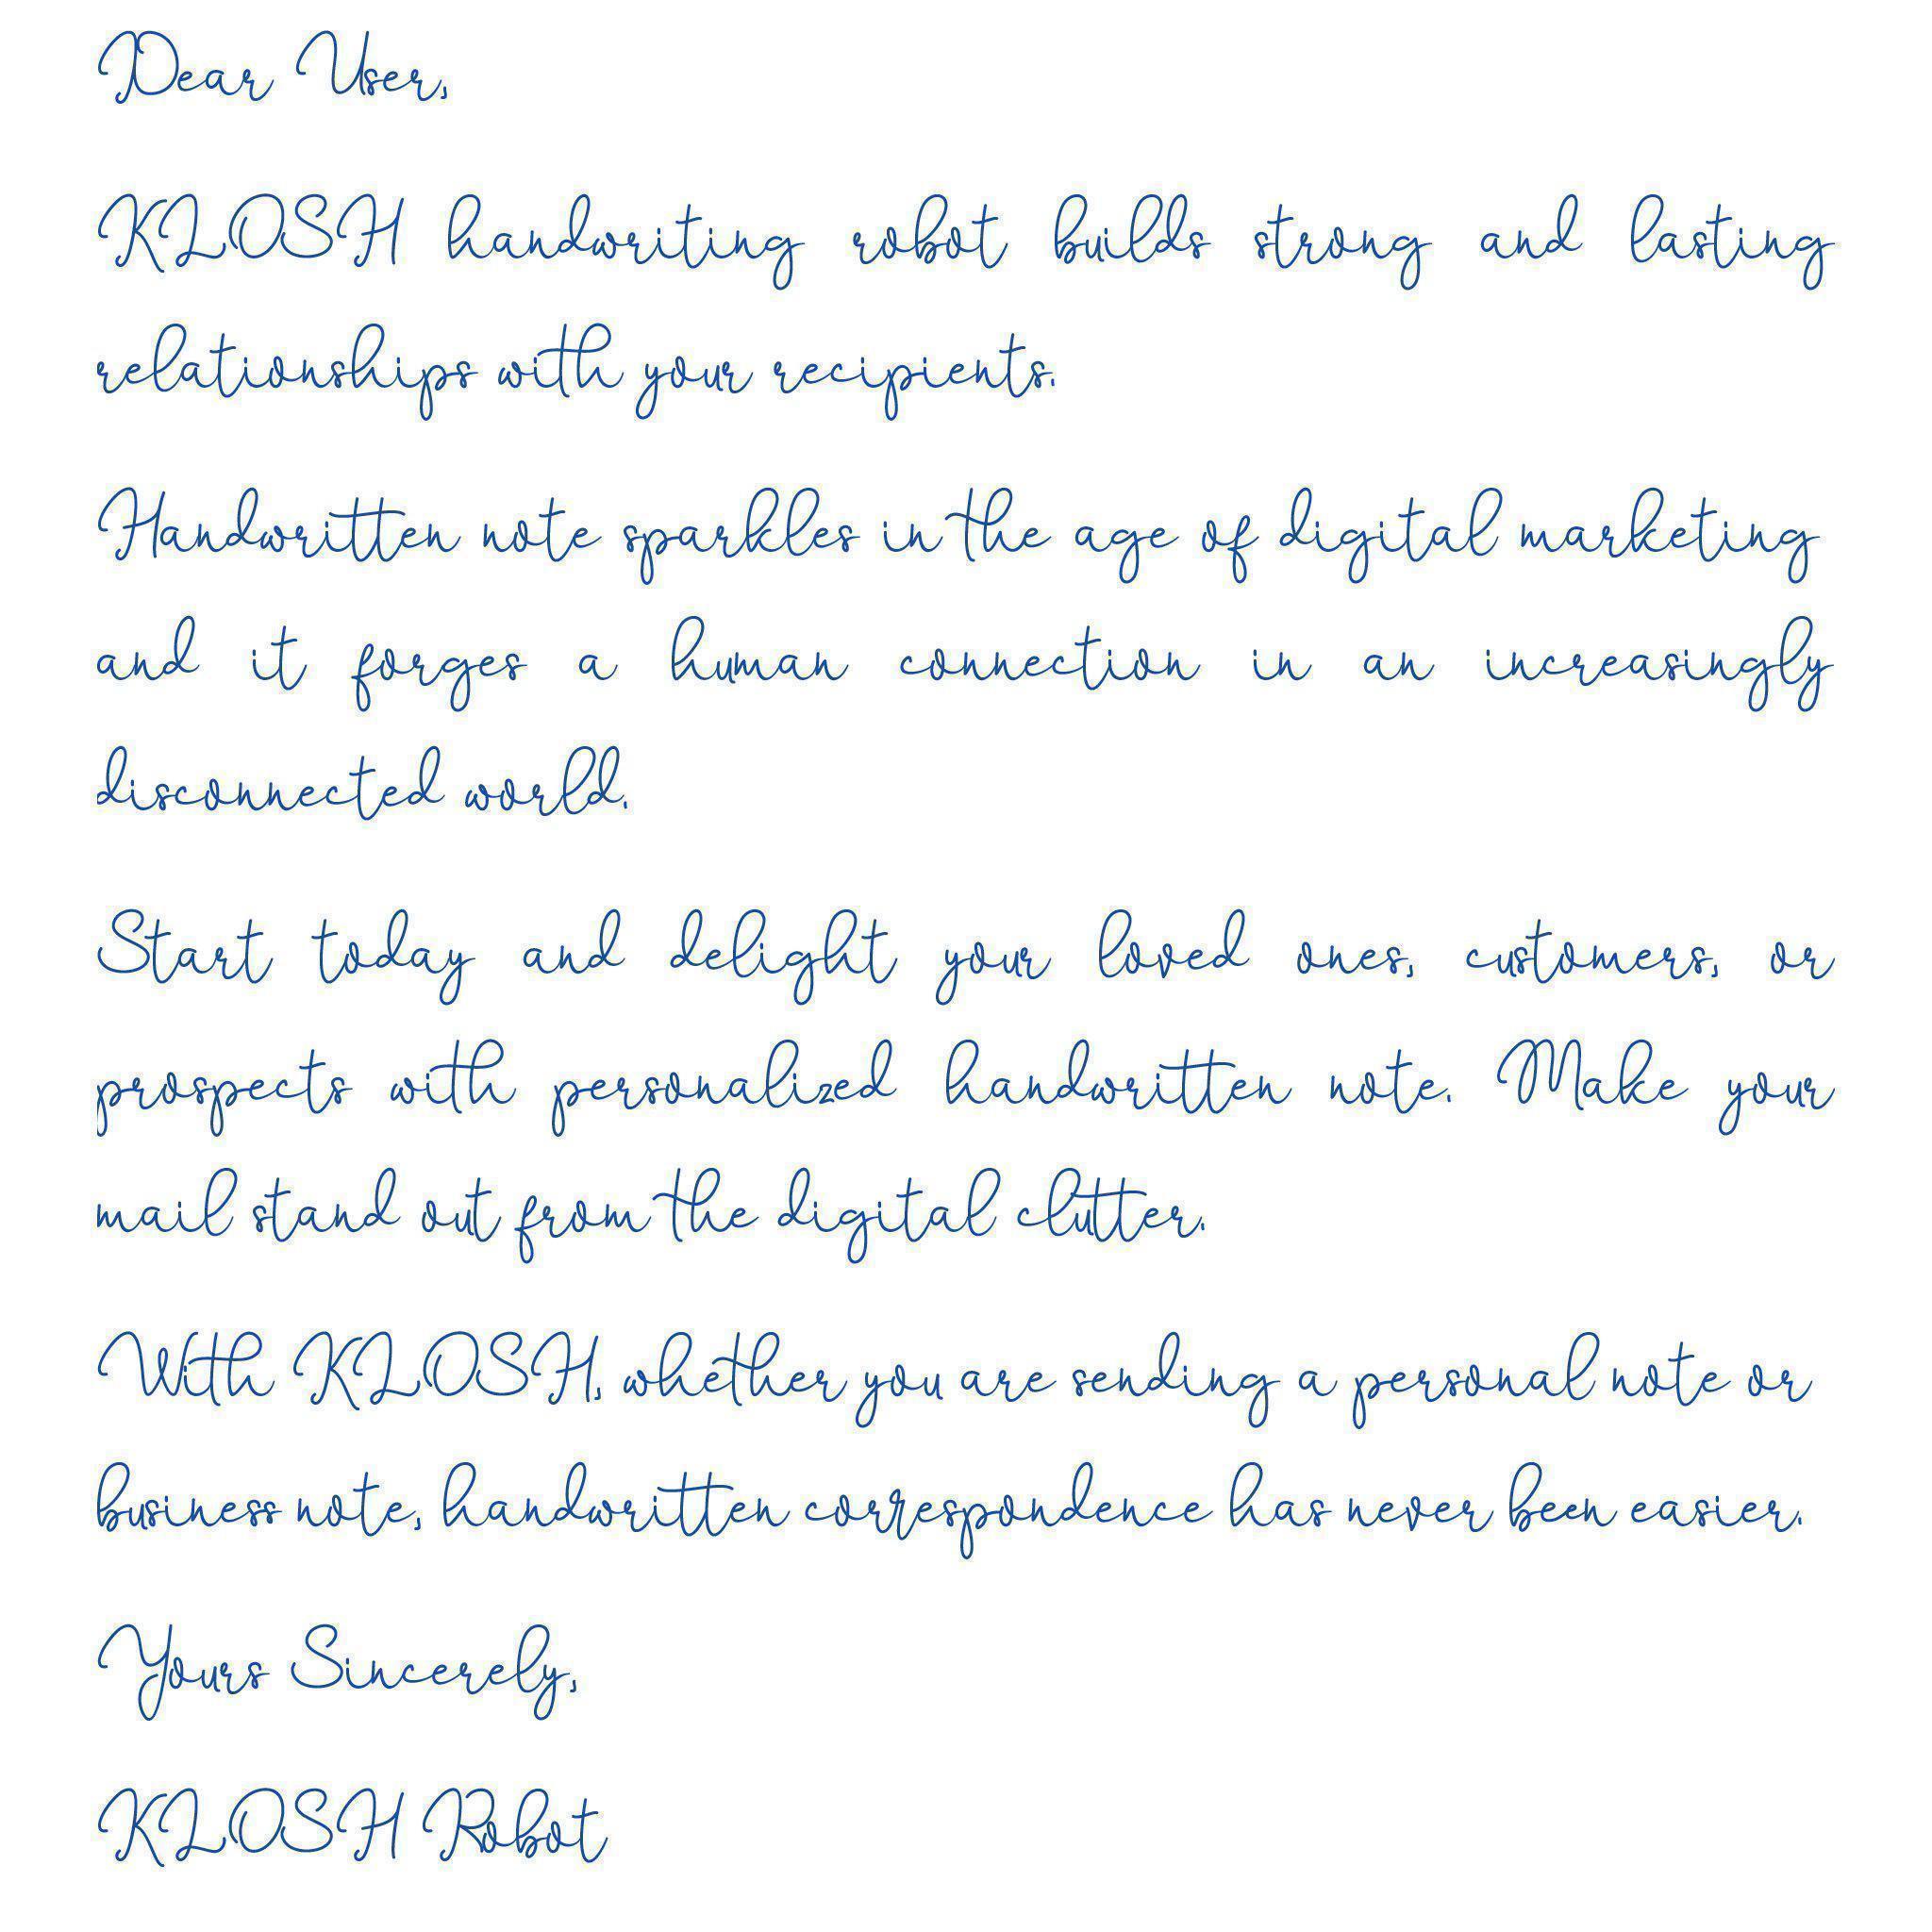 Dear User,
KLOSH handwriting robot builds strong and lasting
relationships with your recipients.
Handwritten note sparkles in the age of digital marketing
and it forges a human connection in an increasingly
disconnected world.
Start today and delight your loved ones, customers, or
prospects with personalized handwritten note. Make your
mail stand out from the digital clutter.
With KLOSH, whether you are sending a personal note or
business note, handwritten correspondence has never been easier.
Yours Sincerely,
KLOSH Robot